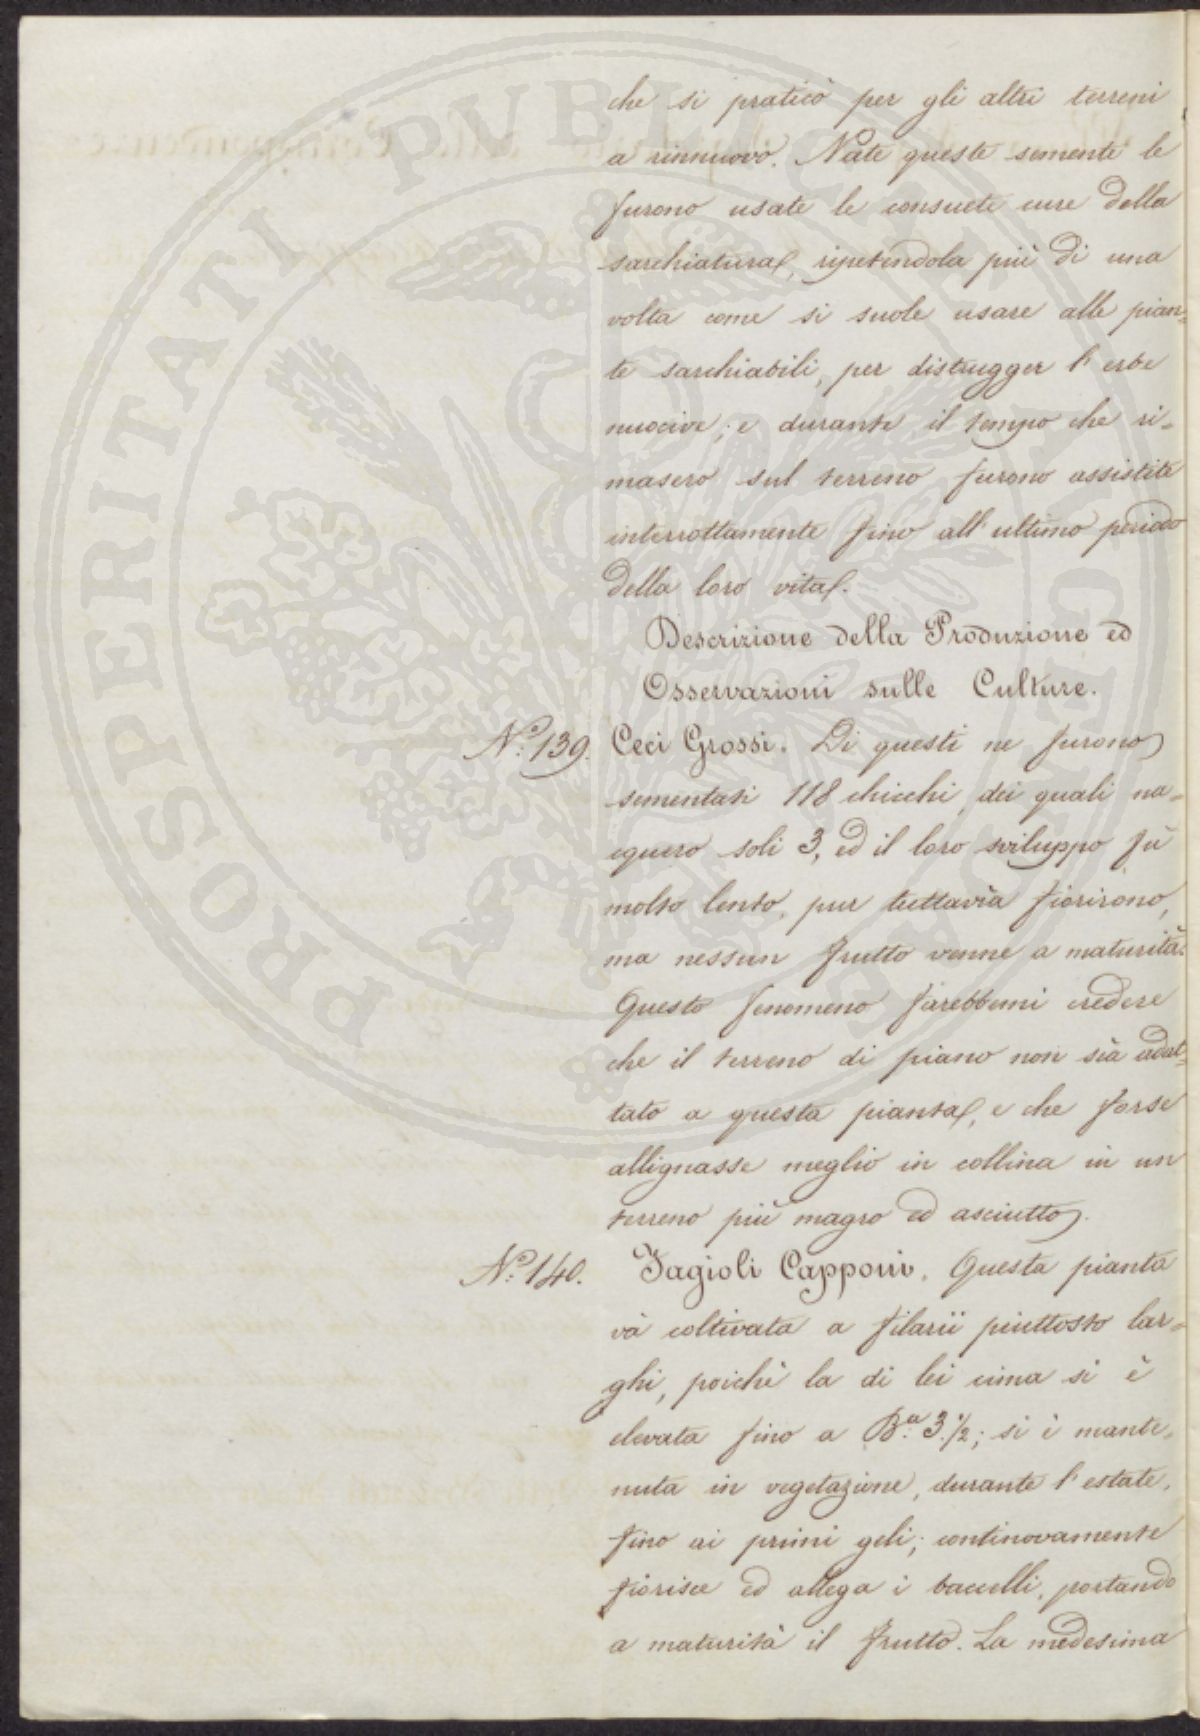 che si praticò per gli altri terreni
a rinnuovo. Nate queste semente le
furono usate le consuete cure della
sarchiatura, ripetendola più di una
volta come si suole usare alle pian=
te sarchiabili, per distrugger l'erbe
nuocive; e durante il tempo che ri=
masero sul terreno furono assistite
interrottamente fino all'ultimo periodo
della loro vita.
Descrizione della Produzione ed
Osservazioni sulle Culture.
N.° 139. Ceci Grossi. Di questi ne furono
sementati 118 chicchi, dei quali na=
cquero soli 3, ed il loro sviluppo fù
molto lento, pur tuttavia fiorirono,
ma nessun frutto venne a maturità.
Questo fenomeno farebbemi credere
che il terreno di piano non sia adat=
tato a questa pianta, e che forse
allignasse meglio in collina in un
terreno più magro ed asciutto.
N.° 140. Fagioli Capponi. Questa pianta
và coltivata a filarii piuttosto lar=
ghi, poichè la di lei cima si è
elevata fino a B.a 3.1/2; si è mante=
nuta in vegetazione, durante l'estate,
fino ai primi geli; continovamente
fiorisce ed allega i baccelli, portando
a maturità il frutto. La medesima
PROSPERITATI PUBLICAE